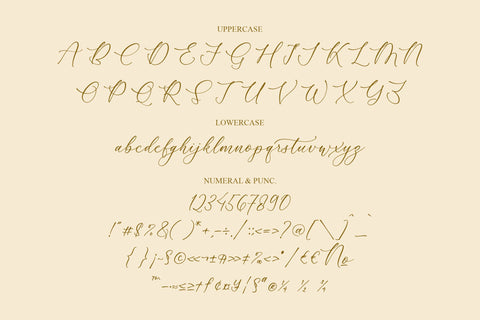 UPPERCASE
A B C D E F G H I J K L M N
O P Q R S T U V W X Y Z
LOWERCASE
abcdefghijklmnopqrstuvwxyz
NUMERAL & PUNC.
1234567890
!"#$%&()*+,-÷./:;<=>?@[\]^_
{}¡~§©«¬±®»‡‰<>•/£€№
™−≈≤≥†ƒ¢¤¥¦§ª@¼ ½ ¾